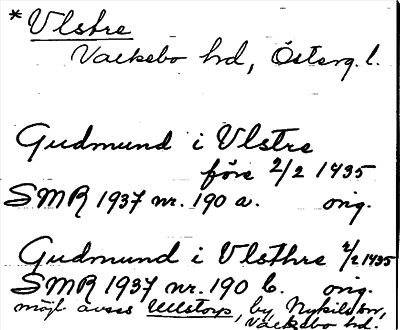 *Vlstre
Valkebo hd, Österg.l.
Gudmund i Vlstre
före 2/2 1435
SMR 1937 nr. 190 a. orig.
Gudmund i Vlsthre 2/2 1435
SMR 1937 nr. 190 b. orig.
möjl. avses Ullstorp, by, Nykil sn,
Valkebo hd.